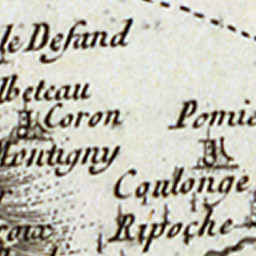 le Defand
lbeteau
Coron
Pomie
Montigny
Coulonge
Ripoche